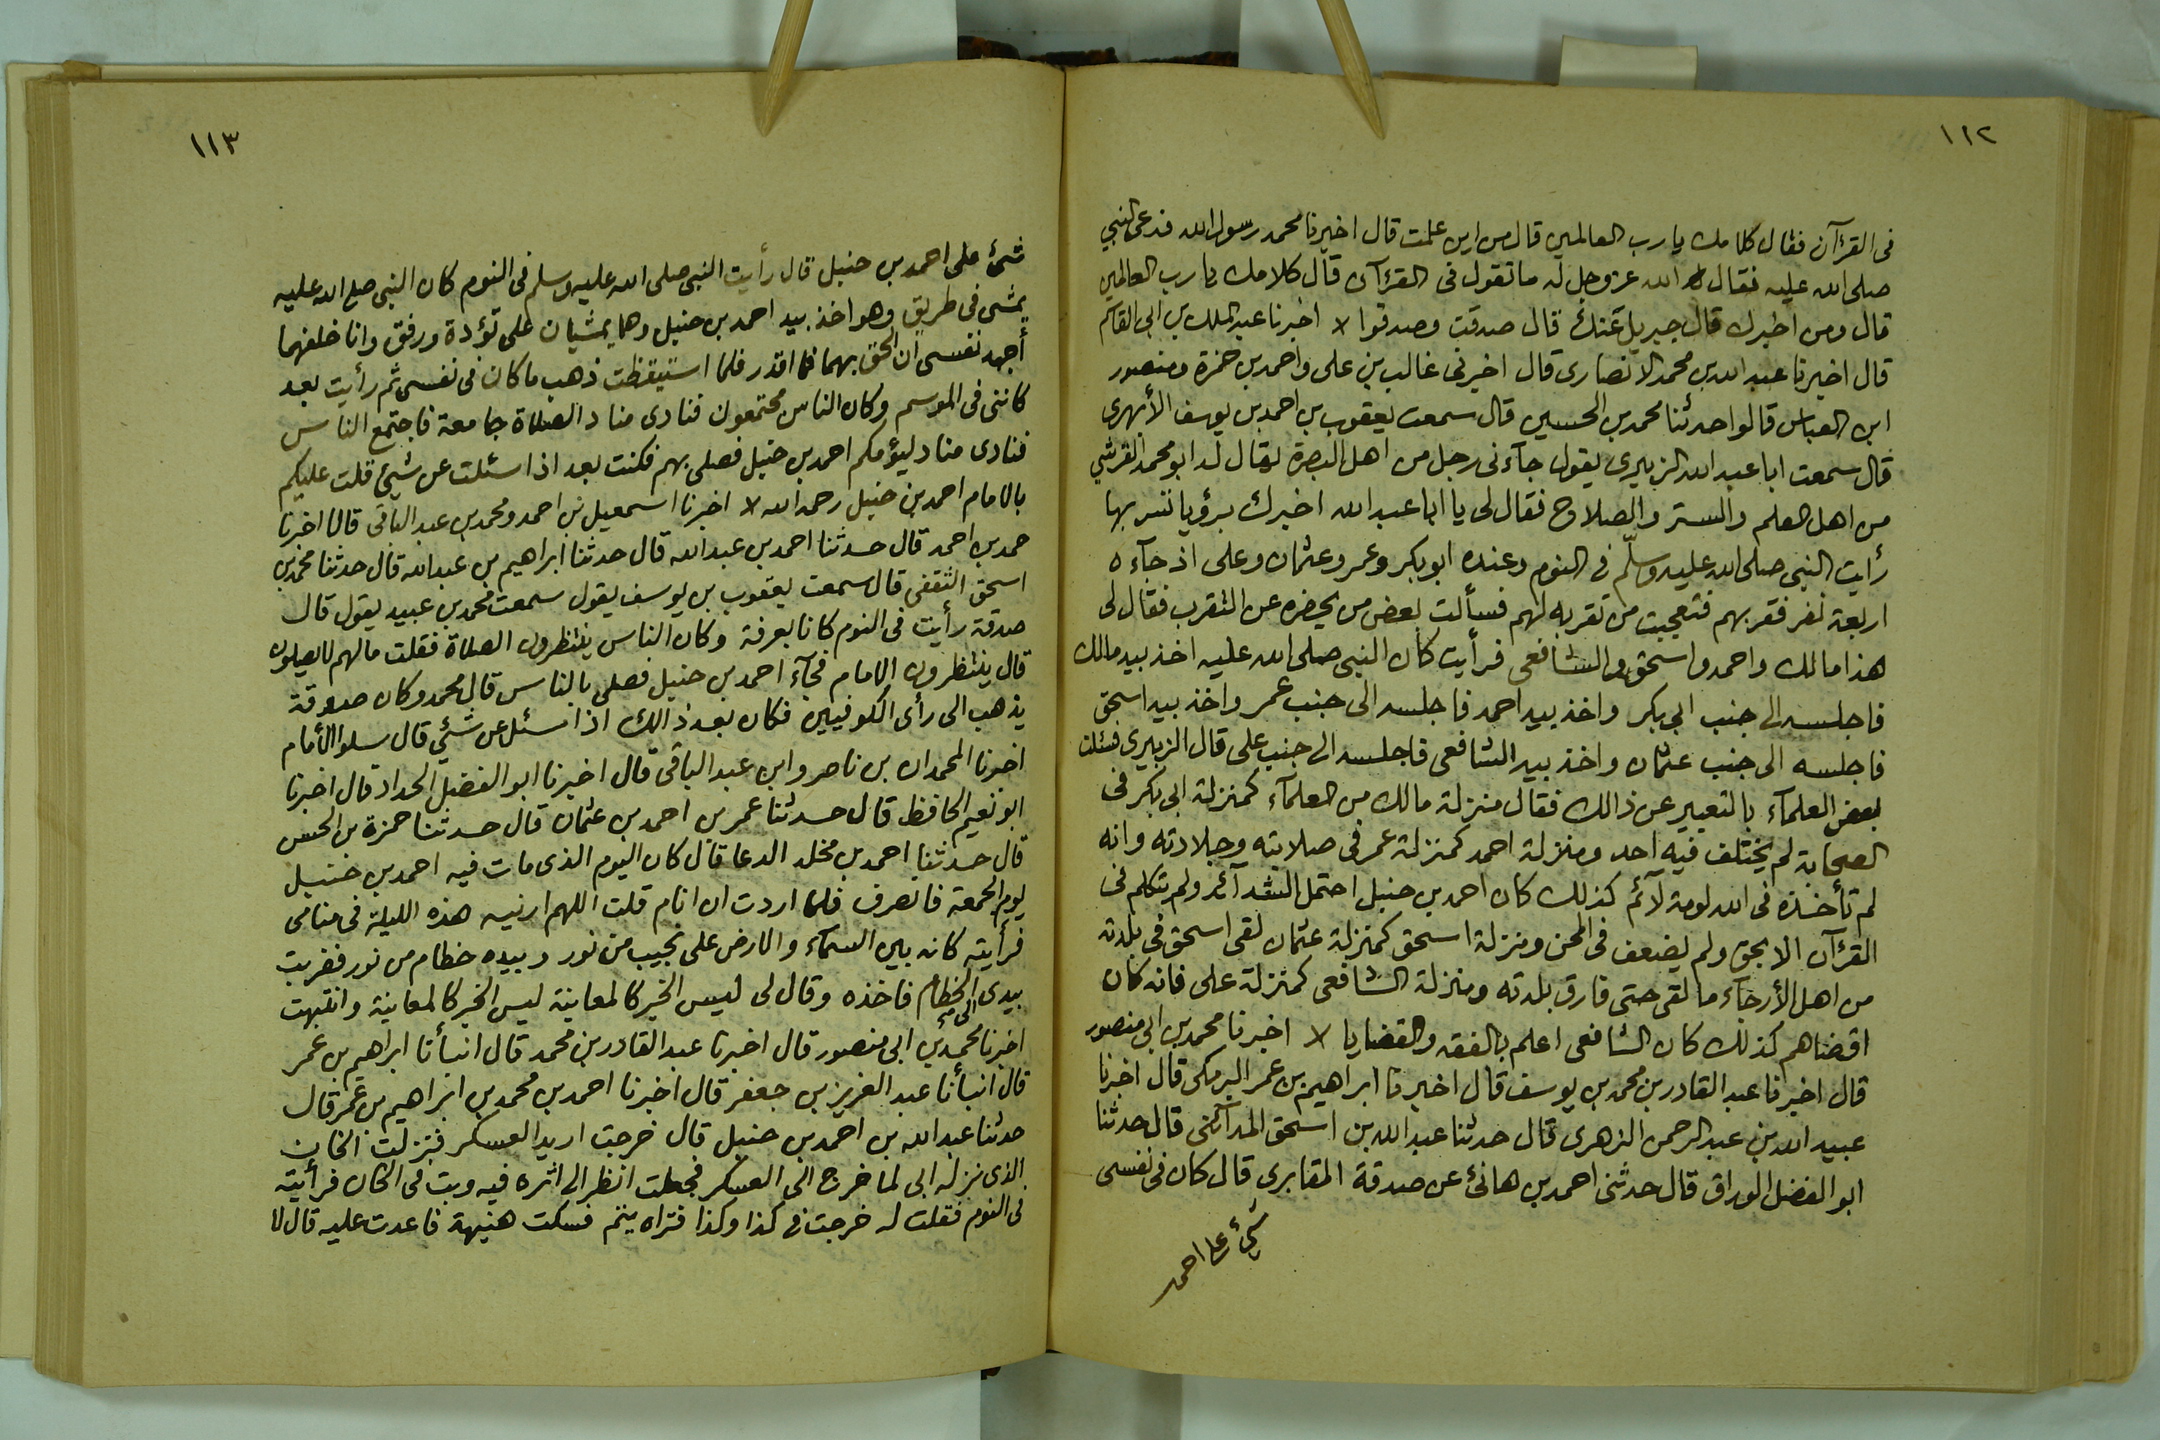 ١١٢
فى القرآن فقال كلامك يا رب العالمين قال من اين علمت قال اخبرنا محمد رسول الله فدعى النبي
صلى الله عليه فقال الله عز وجل له ما تقول فى القرآن قال كلامك يا رب العالمين
قال ومن اخبرك قال جبريل عنك قال صدقت وصدقوا لا اخبرنا عبد الملك بن ابى القاسم
قال اخبرنا عبد الله بن محمد الانصارى قال اخبرنى غالب بن على واحمد بن حمزة ومنصور
ابن العباس قالوا حدثنا محمد بن الحسين قال سمعت يعقوب بن احمد بن يوسف الأبهرى
قال سمعت ابا عبد الله الزبيرى يقول جآءنى رجل من اهل البصرة يقال له ابو محمد القرشى
من اهل العلم والستر والصلاح فقال لى يا ابا عبد الله اخبرك برؤيا تسر بها
رأيت النبى صلى الله عليه وسلّم فى النوم وعنده ابو بكر وعمر وعثمان وعلى اذ جآءه
اربعة نفر فقربهم فتعجبت من تقربه لهم فسألت بعض من يحضره عن التقرب فقال لى
هذا مالك واحمد واسحق والشافعى فرأيت كان النبى صلى الله عليه اخذ بيد مالك
فاجلسه الى جنب ابى بكر واخذ بيد احمد فاجلسه الى جنب عمر واخذ بيد اسحق
فاجلسه الى جنب عثمان واخذ بيد الشافعى فاجلسه الى جنب على قال الزبيرى فسئلت
بعض العلمآء بالتعبير عن ذالك فقال منزلة مالك من العلمآء كمنزلة ابى بكر فى
الصحابة لم يختلف فيه احد ومنزلة احمد كمنزلة عمر فى صلابته وجلادته وانه
لم تأخذه فى الله لومة لآئم كذلك كان احمد بن حنبل احتمل الشدآئد ولم يتكلم فى
القرآن الا بحق ولم يضعف فى المحن ومنزلة اسحق كمنزلة عثمان لقى اسحق فى بلدته
من اهل الأرجآء ما لقى حتى فارق بلدته ومنزلة الشافعى كمنزلة على فانه كان
اقضاهم كذلك كان الشافعى اعلم بالفقه والقضايا لا اخبرنا محمد بن ابى منصور
قال اخبرنا عبد القادر بن محمد بن يوسف قال اخبرنا ابراهيم بن عمر البرمكى قال اخبرنا
عبيد الله بن عبد الرحمن الزهرى قال حدثنا عبد الله بن اسحق المدآئنى قال حدثنا
ابو الفضل الوراق قال حدثنى احمد بن هانئ عن صدقة المقابرى قال كان فى نفسى
شئ على احمد
١١٣
شئ على احمد بن حنبل قال رأيت النبى صلى الله عليه وسلم فى النوم كان النبى صلع الله عليه
يمشى فى طريق وهو اخذ بيد احمد بن حنبل وهما يمشيان على تؤدة ورفق وانا خلفهما
أجهد نفسى أن الحق بهما فما اقدر فلما استيقظت ذهب ما كان فى نفسى ثم رأيت بعد
كاننى فى الموسم وكان الناس مجتمعون فنادى مناد الصلاة جامعة فاجتمع الناس
فنادى مناد ليؤمكم احمد بن حنبل فصلى بهم فكنت بعد اذا سئلت عن شيئ قلت عليكم
بالامام احمد بن حنبل رحمه الله لا اخبرنا اسمعيل بن احمد ومحمد بن عبد الباقى قالا اخبرنا
حمد بن احمد قال حدثنا احمد بن عبد الله قال حدثنا ابراهيم بن عبد الله قال حدثنا محمد بن
اسحق الثقفى قال سمعت يعقوب بن يوسف يقول سمعت محمد بن عبيد يقول قال
صدقة رأيت فى النوم كانا بعرفة وكان الناس ينتظرون الصلاة فقلت مالهم لا يصلون
قال ينتظرون الامام فجآء احمد بن حنبل فصلى بالناس قال محمد وكان صدوقة
يذهب الى رأى الكوفيين فكان بعد ذالك اذا سئل عن شئي قال سلوا الأمام
اخبرنا المحمدان بن ناصر وابن عبد الباقى قال اخبرنا ابو الفضل الحداد قال اخبرنا
ابو نعيم الحافظ قال حدثنا عمر بن احمد بن عثمان قال حدثنا حمزة بن الحسن
قال حدثنا احمد بن مخلد الدعا قال كان اليوم الذى مات فيه احمد بن حنبل
يوم الجمعة فانصرف فلما اردت ان انام قلت اللهم ارنيه هذه الليلة فى منامى
فرأيته كانه بين السمآء والارض على نجيب من نور وبيده خطام من نور فضربت
بيدى الى الخطام فاخذه وقال لى ليس الخبر كالمعاينة ليس الخبر كالمعاينة وانتبهت
اخبرنا محمد بن ابى منصور قال اخبرنا عبد القادر بن محمد قال انبأنا ابراهيم بن عمر
قال انبأنا عبد العزيز بن جعفر قال اخبرنا احمد بن محمد بن ابراهيم بن عمر قال
حدثنا عبد الله بن احمد بن حنبل قال خرجت اريد العسكر فنزلت الخان
الذى نزله ابى لما خرج الى العسكر فجعلت انظر الى اثره فيه وبت فى الخان فرأيته
فى النوم فقلت له خرجت فى كذا وكذا فتراه يتم فسكت هنيهة فاعدت عليه قال لا